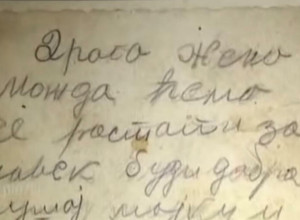 Драга жено
можда ћемо
се растати за
навек буди добра
чувај мојки и